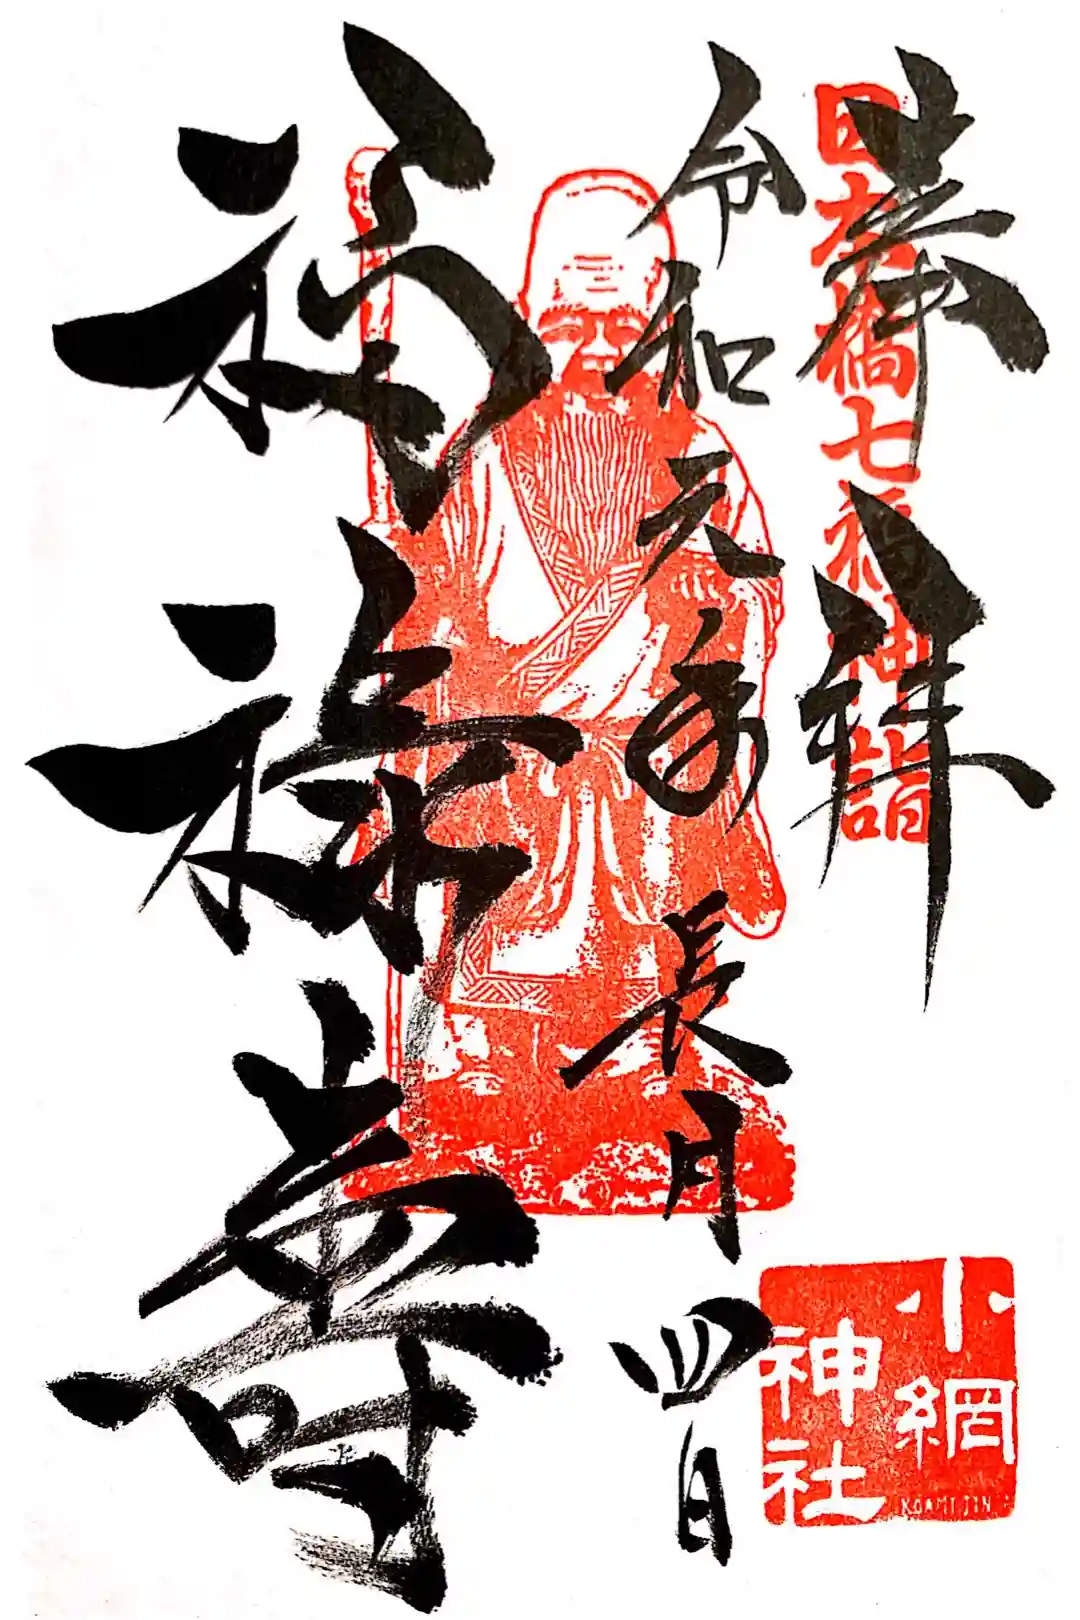 奉拝
日本橋七福神詣
令和元年長月四日
福禄寿
小網神社
KOAMIJIN